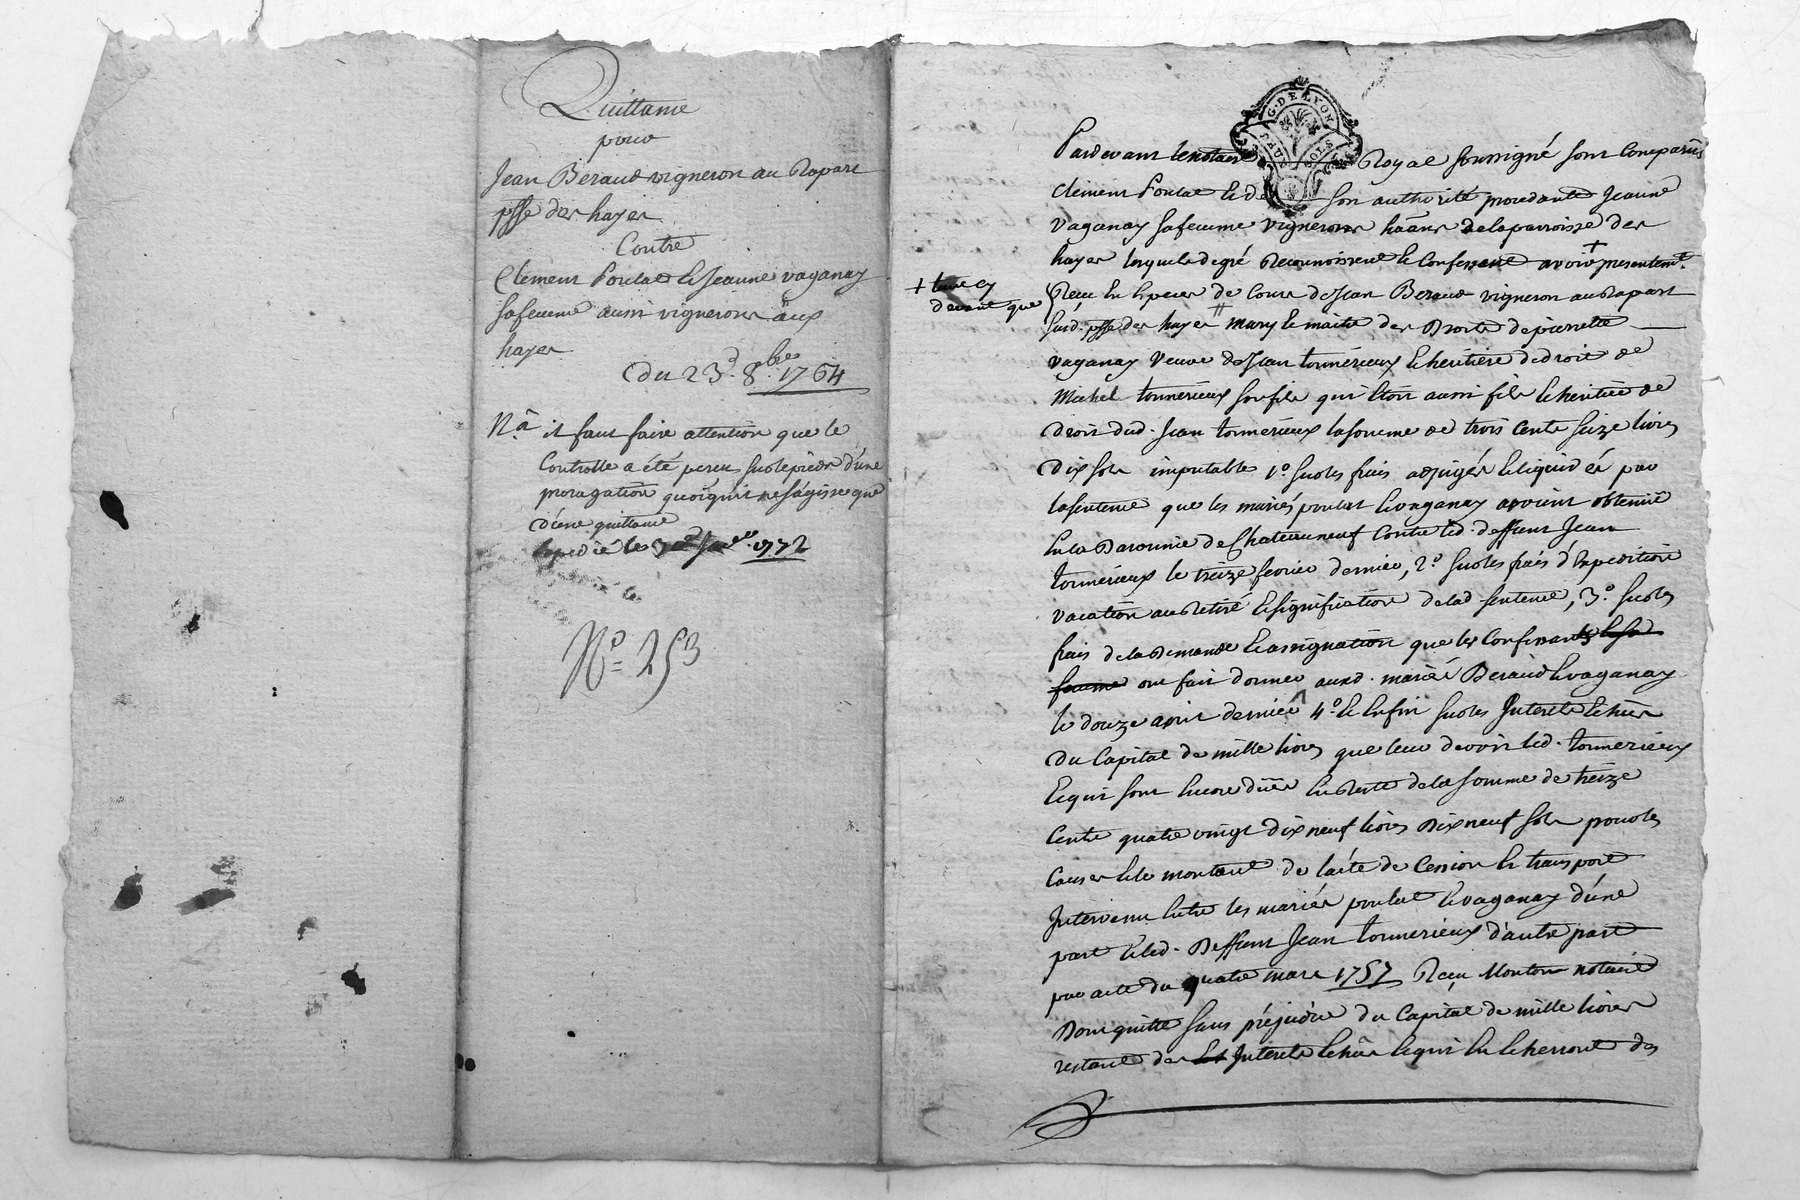 Quittance
pour
Jean Beraud vigneron au Rapart
psse des hayes
Contre
Clement Poulat & Jeanne vaganay
sa femme aussi vignerons aux
hayes
Du 23d. 8bre 1764
Na. il faut faire attention que le
Controlle a été perçu sur le pied d'une
prorogation quoiqu'il ne s'agisse que
d'une quittance
Expedié le 1772
No. 253
G. DE LYON
DEUX SOLS
Pardevant le notaire Royal soussigné sont comparus
Clement Poulat & de son authorité procedante Jeanne
vaganay sa femme vignerons hãans de la parroisse des
hayes lesquels de gré Reconnoissent & Confessent avoir + presentemt.
+ tant cy
devant que
Reçu En Especes de Cours de Jean Beraud vigneron au Rapart
susd. psse des hayes mary & maitre des Droits de pierrette
vaganay veuve de Jean tonnerieux & heritiere de droit de
Michel tonnerieux son fils qui Etoit aussi fils & heritier de
droit dud. Jean tonnerieux la somme de trois Cents seize livres
dix sols imputables 1o. sur les frais adjugés & liquidés par
la sentence que les mariés poulat & vaganay avoient obtenuë
En la Baronnie de Chateauneuf Contre led. deffunt Jean
tonnerieux le treize fevrier dernier, 2o. sur les frais d'Expedition
vacation au Retiré & signification de lad. sentence, 3o. sur les
frais de la Demande & assignation que les Confessants & sad.
femme ont fait donner auxd. mariés Beraud & vaganay
le douze avril dernier 4o. & Enfin sur les Interets Echus
du Capital de mille livres que leur devoit led. tonnerieux
& qui sont Encore dües En Reste de la somme de treize
Cents quatre vingt dix neuf livres Dix neuf sols pour les
Causes & le montant de l'acte de Cession En transport
Intervenu Entre les mariés poulat & vaganay d'une
part & led. Deffunt Jean tonnerieux d'autre part
par acte du quatre mars 1757 Reçu Monton notaire
Dont quitte sans préjudice du Capital de mille livres
restant des Interets Echus & qui En Echerront des